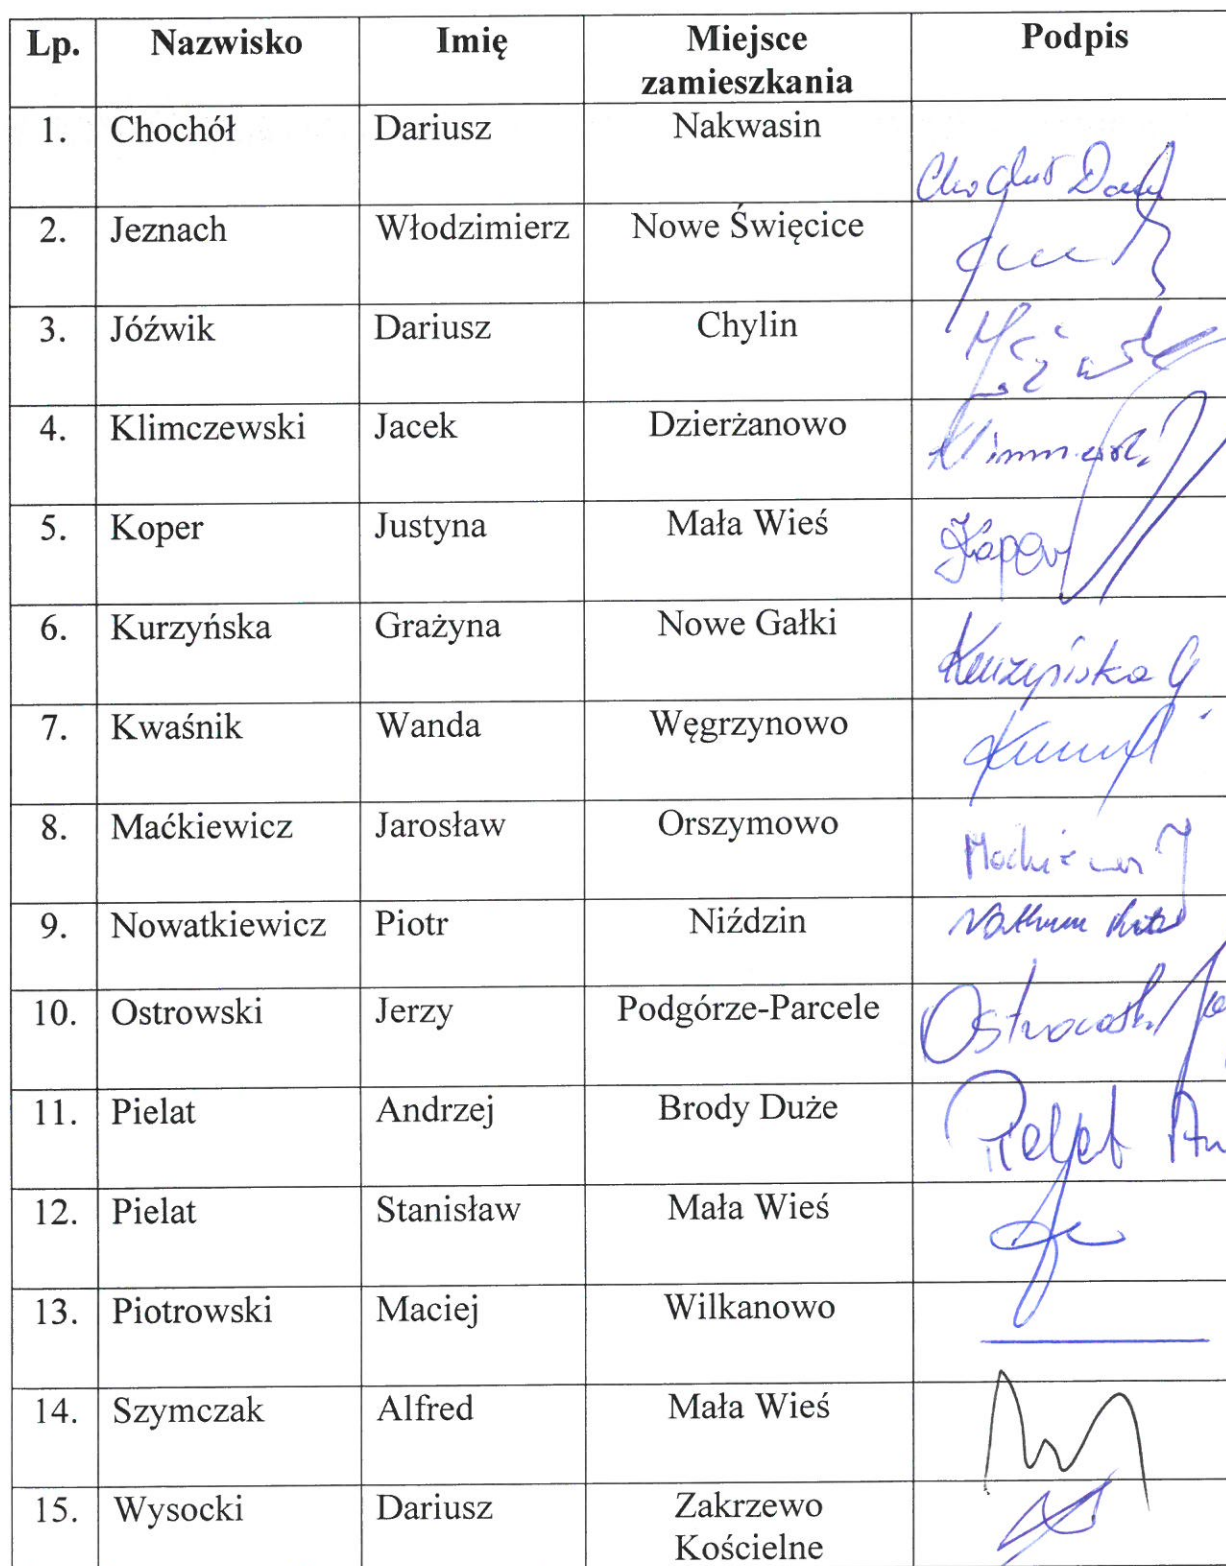 Lp. Nazwisko Imię Miejsce zamieszkania Podpis
1. Chochół Dariusz Nakwasin
2. Jeznach Włodzimierz Nowe Święcice
3. Jóźwik Dariusz Chylin
4. Klimczewski Jacek Dzierżanowo
5. Koper Justyna Mała Wieś Koper
6. Kurzyńska Grażyna Nowe Gałki Kurzyńska G
7. Kwaśnik Wanda Węgrzynowo
8. Maćkiewicz Jarosław Orszymowo
9. Nowatkiewicz Piotr Niździn
10. Ostrowski Jerzy Podgórze-Parcele Ostrowski
11. Pielat Andrzej Brody Duże Pielat An
12. Pielat Stanisław Mała Wieś
13. Piotrowski Maciej Wilkanowo
14. Szymczak Alfred Mała Wieś
15. Wysocki Dariusz Zakrzewo Kościelne